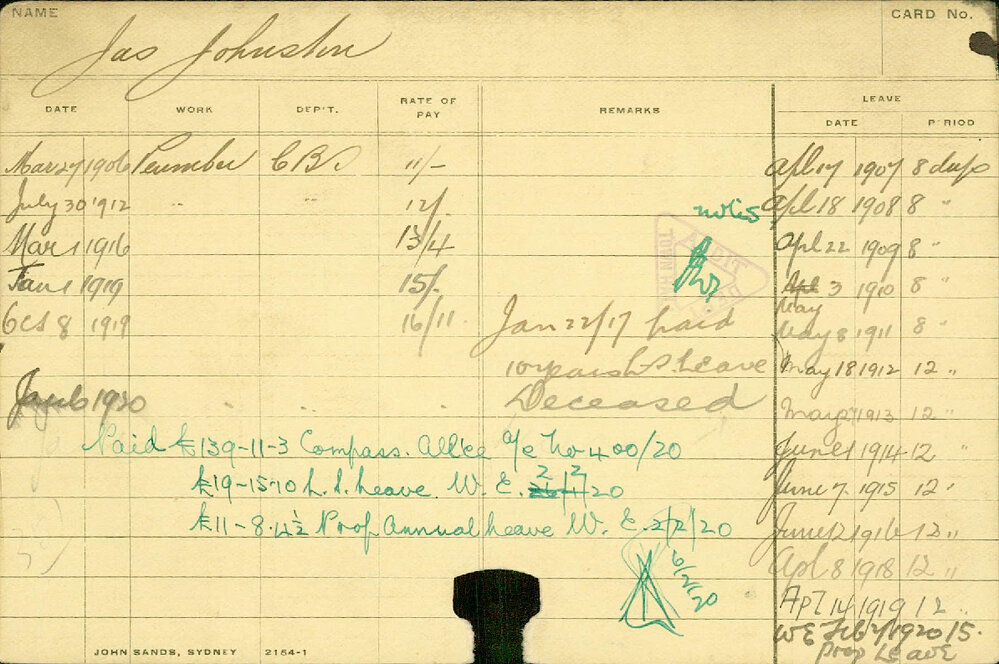 NAME
CARD No.
Jas Johnston
DATE WORK DEP'T. RATE OF PAY REMARKS LEAVE
DATE PERIOD
Mar 27 1906 Plumber C.B. 11/- Apl 17 1907 8 days
July 30 1912 " " 12/. notes Apl 18 1908 8 "
Mar 1 1916 13/4 Apl 22 1909 8 "
Jan 1 1919 15/. Apl 3 1910 8 "
May
Oct 8 1919 16/11. Jan 22/17 paid May 8 1911 8 "
10 years L.S. Leave May 18 1912 12 "
Jan 6 1920 Deceased
Mar 27 1913 12 "
Paid £139-11-3 Compass. All'ce a/c No 400/20 June 1 1914 12 "
£19-15-10 L.S. Leave. W. E. 2/2/20 June 7 1915 12 "
£11-8-4½ Prop Annual Leave W. E. 2/2/20 June 12 1916 12 "
6/2/20
Apl 8 1918 12 "
Apl 14 1919 12 "
WE Feb 2/1920 15.
Prop Leave
JOHN SANDS, SYDNEY 2154-1
AUDIT
TOWN HALL